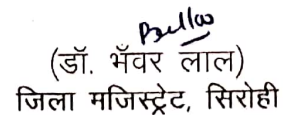 (डॉ. भँवर लाल)
जिला मजिस्ट्रेट, सिरोही